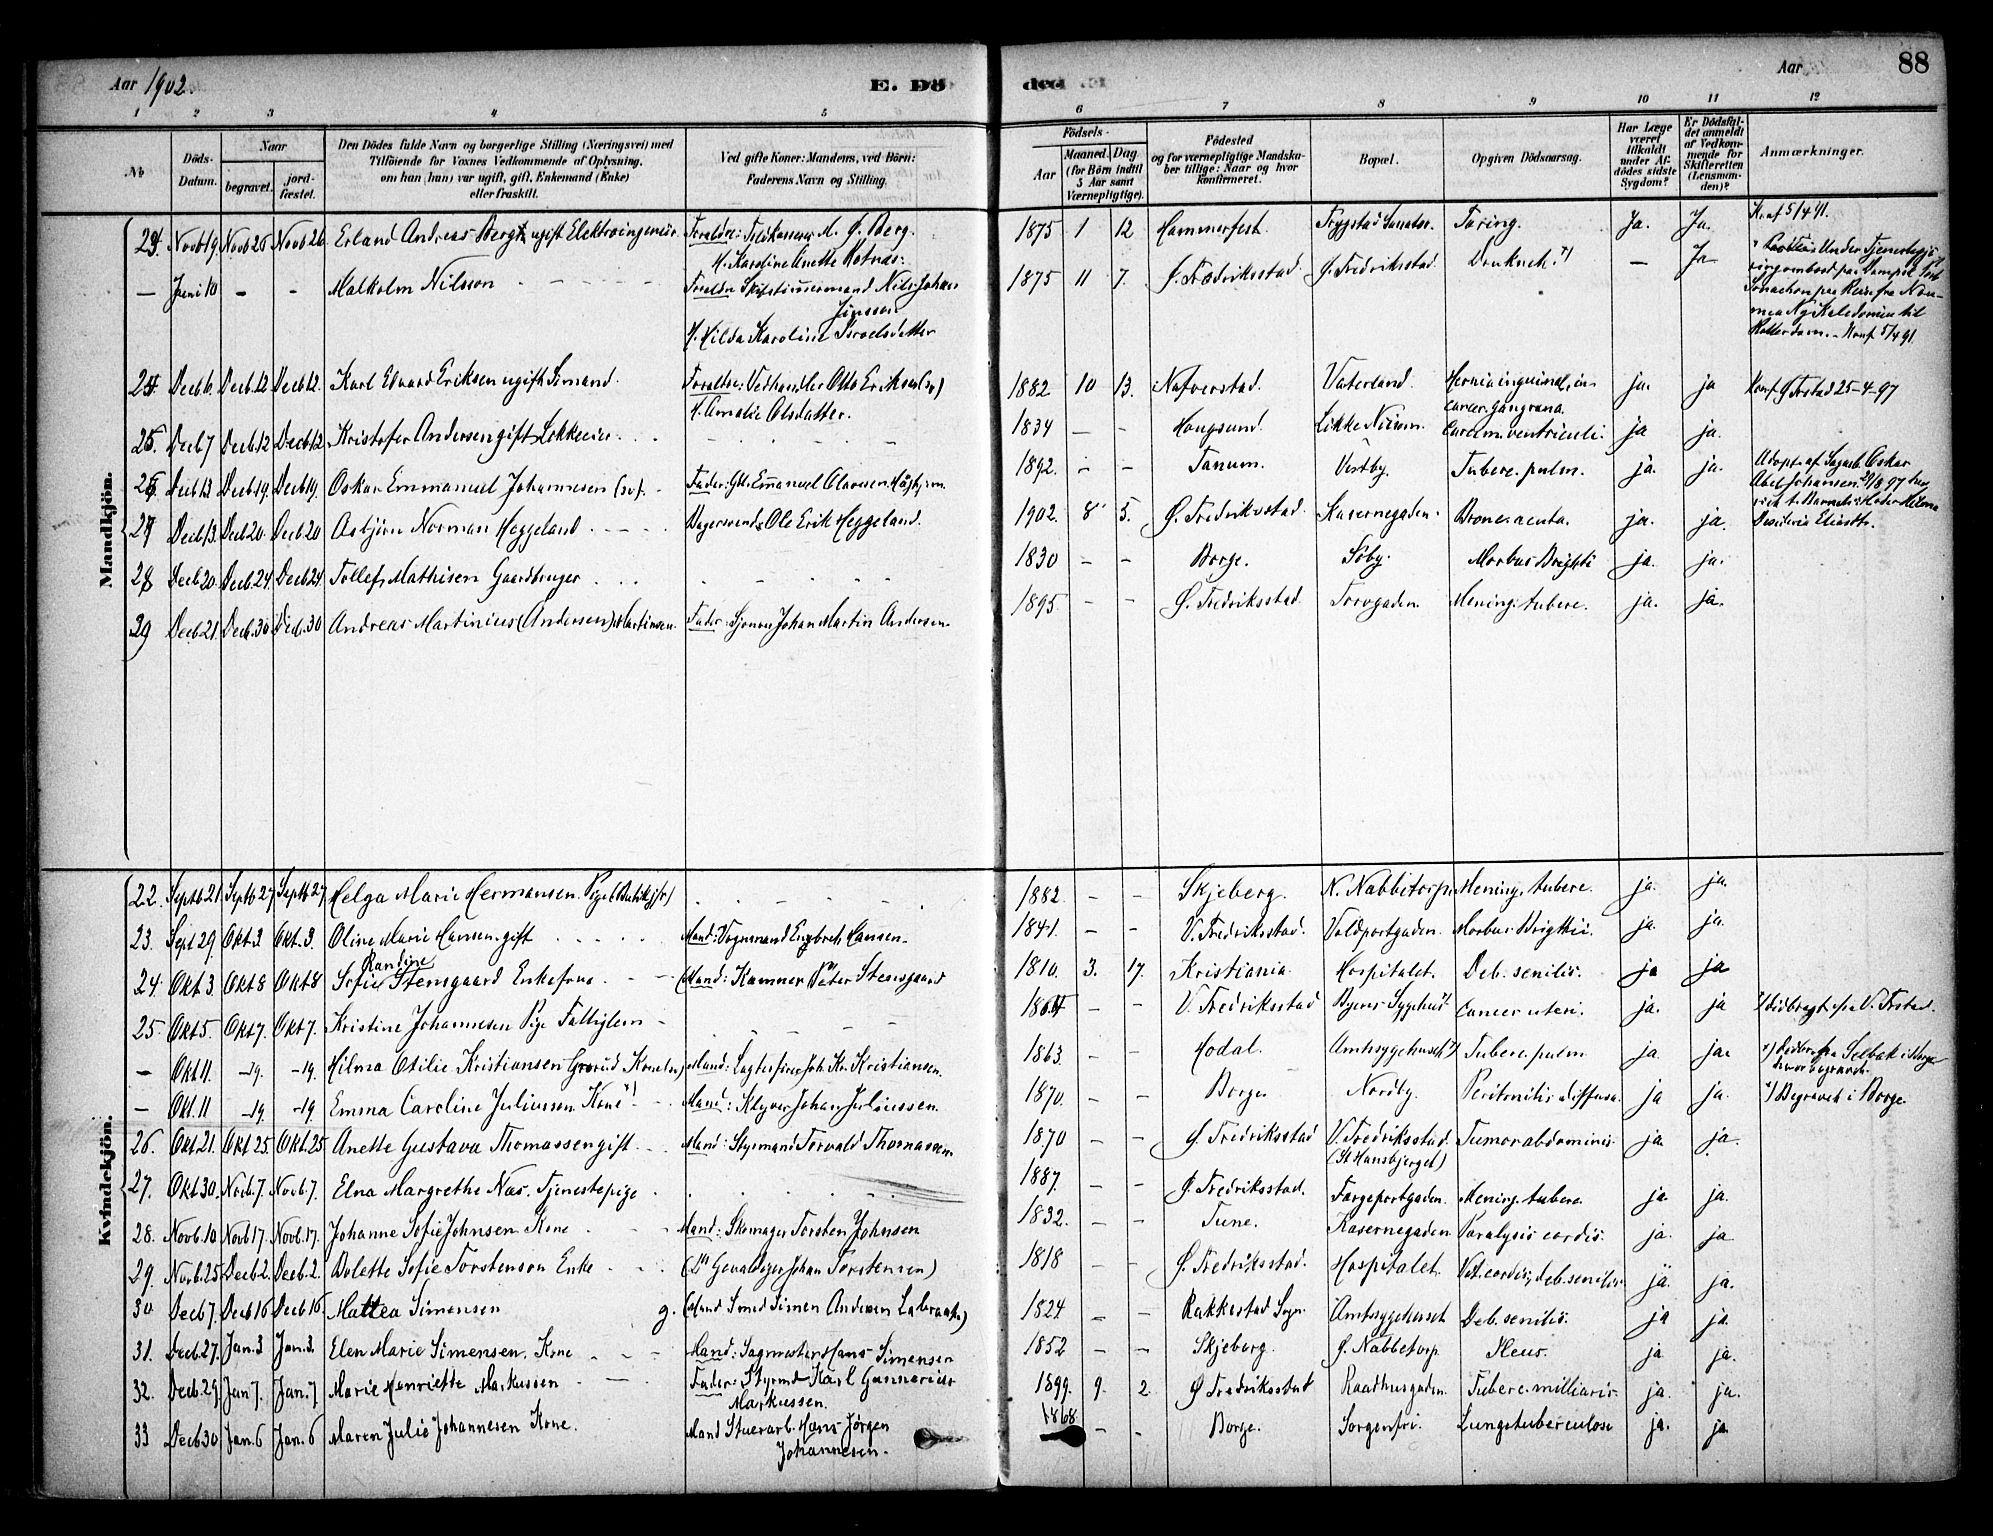 Aar 1902.
E. Dö
ded E.
Aar
88
1 2 3 4 5 6 7 8 9 10 11 12
No
Döds-
Datum.
Naar
begravet.
jord-
fæstet.
Den Dödes fulde Navn og borgerlige Stilling (Næringsvei) med
Tilföiende for Voxnes Vedkommende af Oplysning,
om han (hun) var ugift, gift, Enkemand (Enke)
eller fraskilt.
Ved gifte Koner: Mandens, ved Börn:
Faderens Navn og Stilling.
Födsels-
Aar
Maaned. Dag
(for Börn indtil
5 Aar samt
Værnepligtige).
Födested
og for værnepligtige Mandska-
ber tillige: Naar og hvor
konfirmeret.
Bopæl.
Opgiven Dödsaarsag.
Har Læge
været
tilkaldt
under Af-
dödes sidste
Sygdom?
Er Dödsfal-
det anmeldt
af Vedkom-
mende for
Skifteretten
(Lensman-
den)?
Anmærkninger.
Mandkjön.
Novb 19. Novb 26 Novb 26 Erland Andreas Berg ugift Elektroingeniör. Foraldre: Toldkasserer M. Ø. Berg. 1875 1 12 Hammerfest. Sanator. Täring. Ja. Ja. Konf 5/4 91.
H. Karoline Anette
— Juni 10 - - Malkolm Nilsson Foraldre Nils Johan 1875 11 7. Ø. Fredriksstad. Ø. Fredriksstad. Druknet. *) — Ja Under Tjenestegjö-
ring ombord paa
Jenssen
paa Reise fra
H. Hilda Karoline Israelsdatter
Ny Kaledonien til
Rotterdam. - Konf 5/4 91.
Decb 6. Decb. 12 Decb 12. Karl Edvard Eriksen ugift Sömand. Foraldre: Vedhandler Otto Eriksen 1882 10 13. Vaterland. Hernia inguinal, in-
carcer. Gangræna. ja. ja Konf. Ø. Frstad 25-4-97
H. Amalie Olsdatter.
25. Decb 7 Decb. 12 Decb 12 Kristofer Andersen gift Lökkeeier. 1834 — — Haugsund. Carcin. ventriculi. ja ja.
26 Decb 13 Decb. 19. Decb 19. Oskar Emmanuel Johannesen Fader: Emmanuel 1892. - - Tanum. Vestby. Tuberc. pulm. ja. ja. Adopt. af Oskar
Abel Johansen
27 Decb 13. Decb 20. Decb 20 Asbjörn Norman Heggeland Ole Erik Heggeland. 1902. 8 5. Ø. Fredriksstad. Kasernegaden. Bronc. acuta. ja. ja.
28 Decb. 20. Decb. 24. Decb 24. Tollef Mathisen Gaardbruger 1830 - - Borge. Söby. Morbus Brightii ja. ja.
29 Decb. 21. Decb. 30 Decb. 30 Andreas Martinius (Andersen) Martinsen. Fader: Johan Martin Andersen. 1895. - - Ø. Fredriksstad Torvgaden. Mening. tuberc. ja. ja.
Kvindekjön.
22. Septb 21. Septb 27 Septb 27 Helga Marie Hermansen. Pige 1882. - - Skjeberg. N. Nabbetorp. Mening. tuberc. ja. ja.
23. Sept 29. Okt. 3 Okt. 3. Oline Marie Hansen. gift Mand: Vognmand Engbret Hansen. 1841. - - V. Fredriksstad. Voldportgaden. Morbus Brigthii. ja. ja.
Randine
24. Okt 3. Okt 8 Okt 8 Sofie Stensgaard Enkefrue (Mand: Peter Stensgaard 1810. 3. 17. Kristiania. Hospitalet. Deb. senilis. ja ja
25. Okt 5. Okt 7. Okt 7. Kristine Johannesen Pige Fattiglem - - V. Fredriksstad Byens Sygehus Cancer uteri. ja. ja
— Okt 11. -19. -19. Hilma Otilie Kristiansen Mand: Joh. Kr. Kristiansen. 1863. - - Hodal. Amtssygehuset Tuberc. pulm ja. ja. Selbak
— Okt. 11 -19. -19 Emma Caroline Juliussen Kone *) Mand: Johan Juliussen. 1870. - - Borge. Nordby. Peritonitis diffusa. ja ja. *) Begravet i Borge
26. Okt 21. Okt 25. Okt. 25 Anette Gustava Thomassen gift Mand: Styrmand Torvald Thomassen 1870 - - Ø. Fredriksstad V. Fredriksstad Tumor abdominis. ja ja.
(St Hansbjerget)
27. Okt 30. Novb. 7. Novb. 7. Elna Margrethe Næs. Tjenestepige 1887. - - Ø. Fredriksstad. Færgeportgaden. Mening. tuberc. ja ja.
28. Novb. 10 Novb 17. Novb. 17. Johanne Sofie Johnsen Kone Mand: Skomager Torsten Johnsen 1832. - - Tune. Kasernegaden Paralysis cordis. ja. ja
29. Novb. 25 Decb 2. Decb. 2. Bolette Sofie Torstenson Enke Johan Torstensen) 1818 - - Ø. Fredriksstad. Hospitalet. Vit. cordis, deb. senilis. ja. ja.
30 Decb 7. Decb 16 Decb 16. Mattea Simensen g. (Mand Smed Simen Andersen 1824 - - Rakkestad Sogn. Amtssygehuset Deb. senilis. ja ja.
31. Decb. 27. Jan. 3 Jan. 3. Elen Marie Simensen. Kone Mand: Sagmester Hans Simensen 1852 - - Skjeberg. Ø. Nabbetorp Ileus. ja ja.
32. Decb. 29 Jan 7. Jan. 7 Marie Henriette Markussen Fader: Styrmd Karl Gunnerius 1899. 9. 2. Ø Fredriksstad Raadhusgaden. Tuberc. milliaris. ja. ja.
Markussen.
33 Decb 30 Jan. 6 Jan. 6 Maren Julie Johannesen Kone. Mand Stuerarb. Hans Jörgen 1868. - - Borge. Sorgenfri. Lungetuberculose ja. ja.
Johannesen.